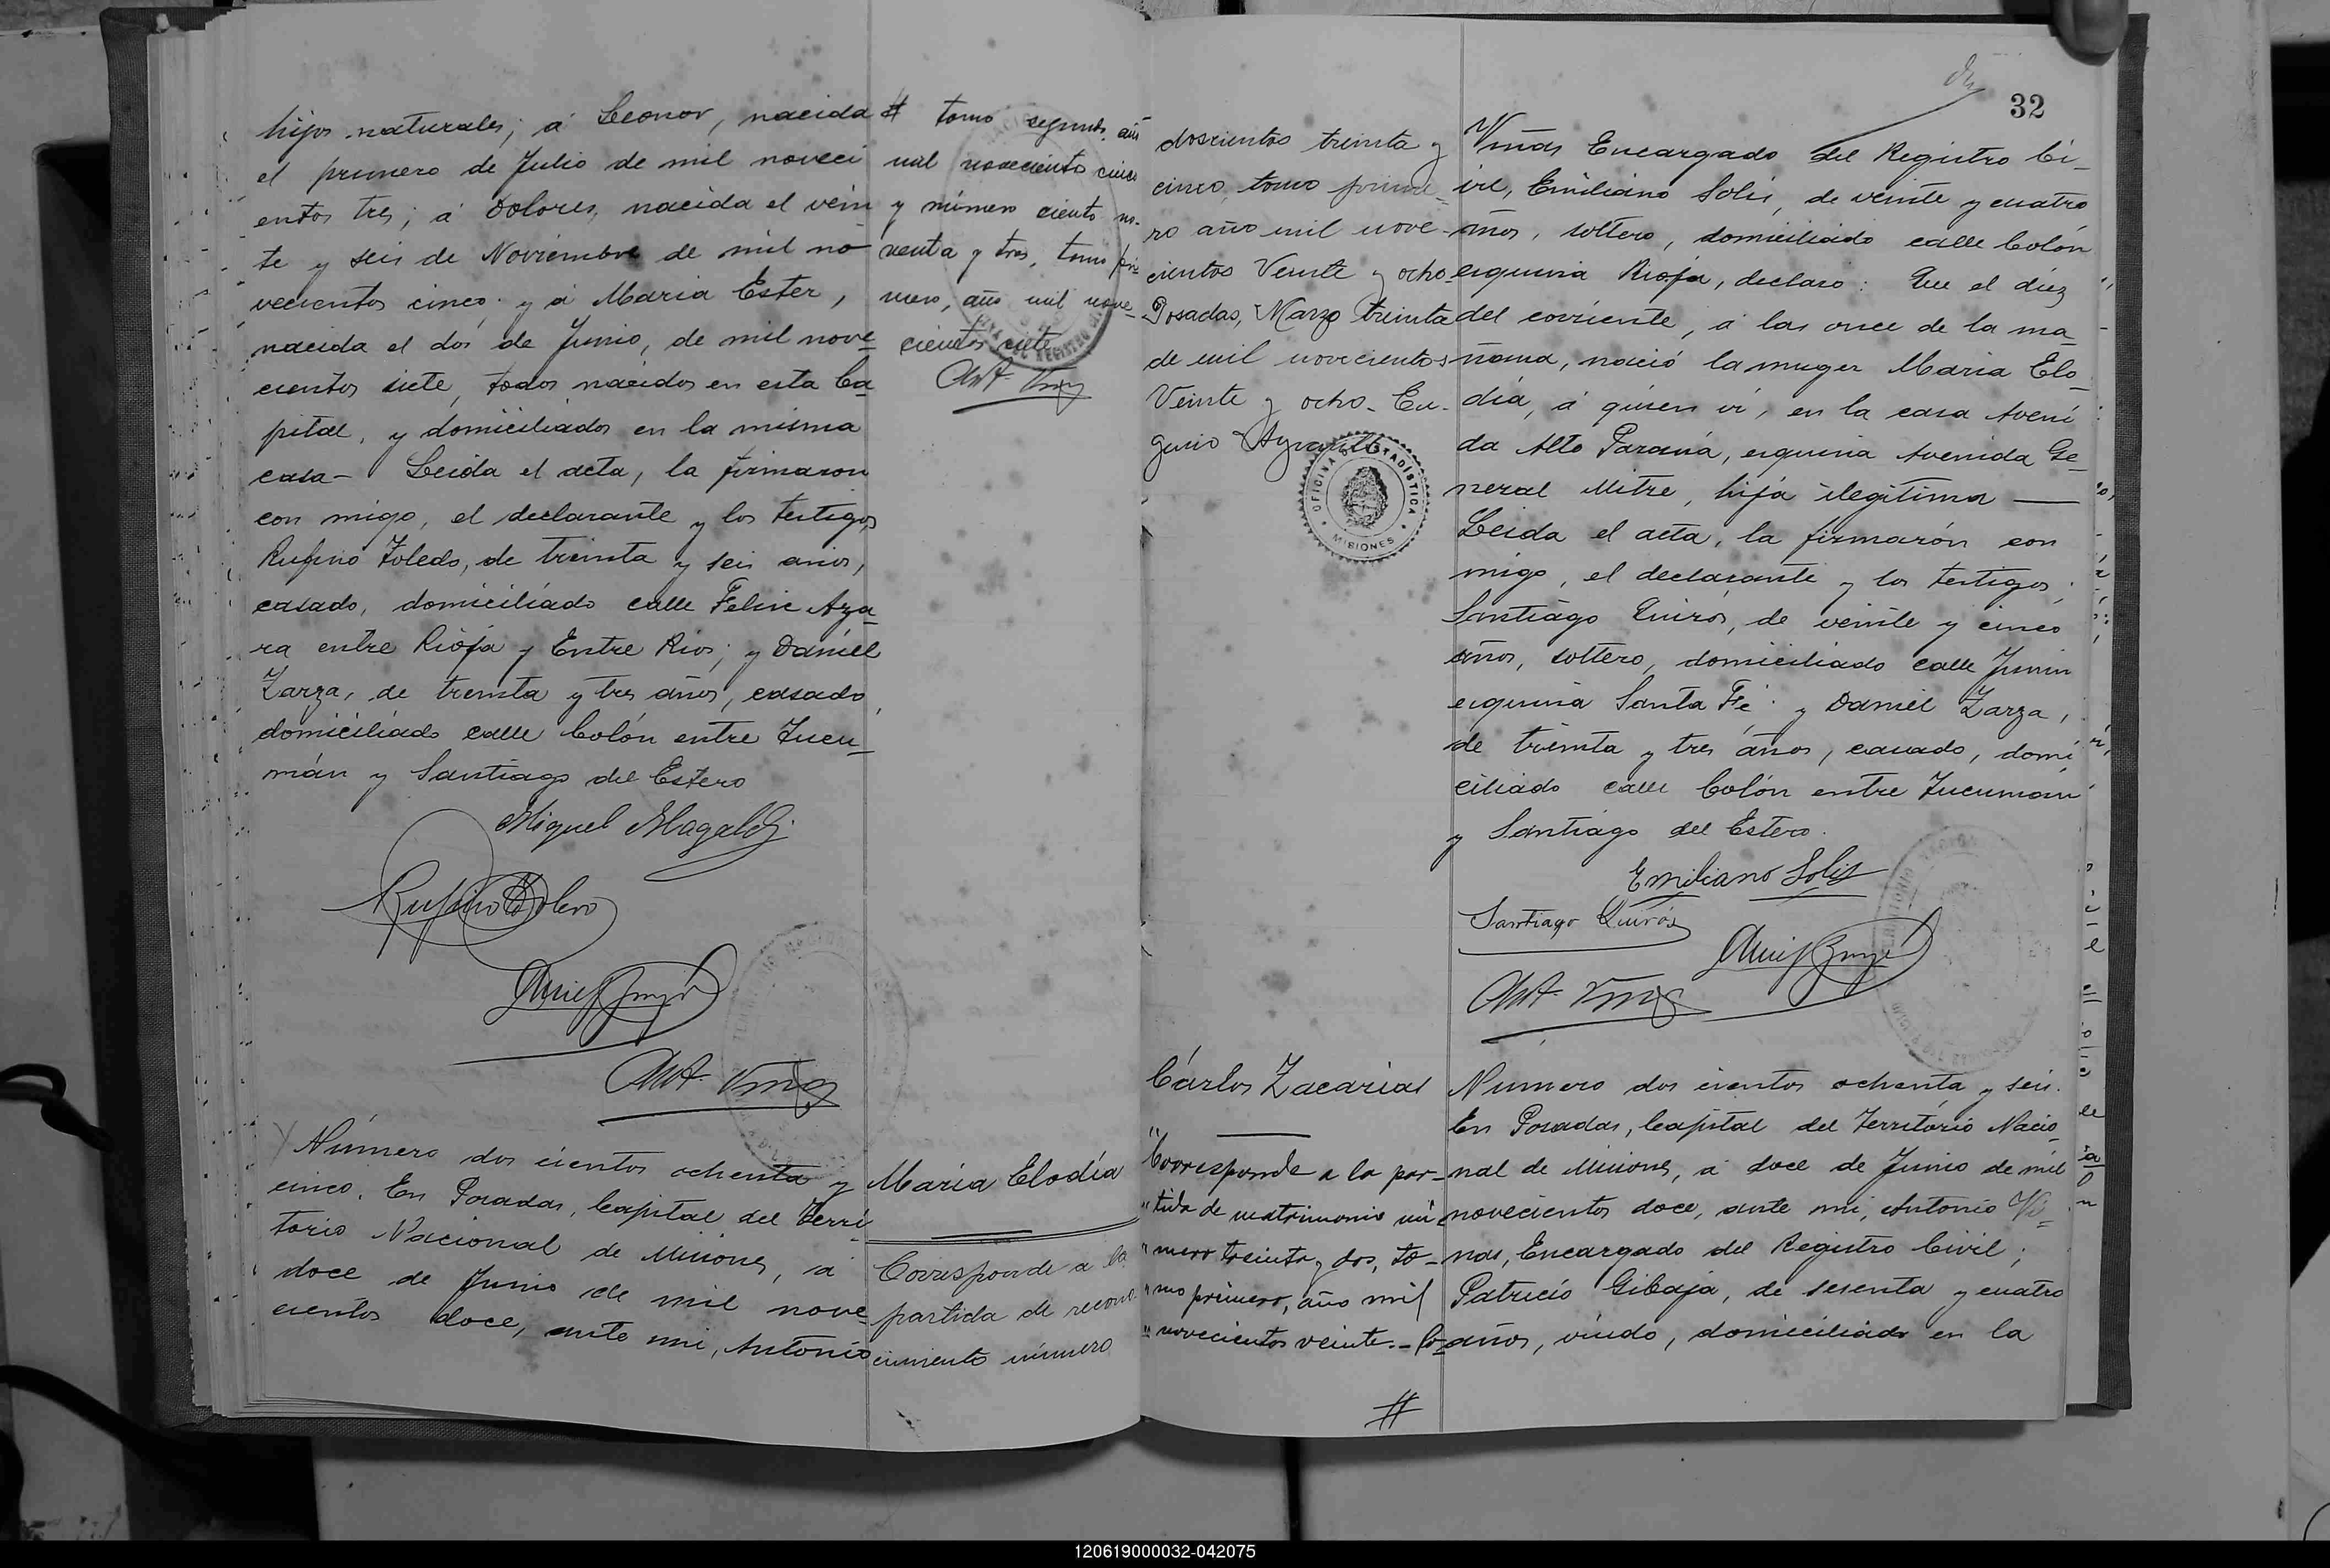 hijos naturales; á Leonor, nacida
el primero de Julio de mil noveci
entos tres; á Dolores, nacida el vein
te y seis de Noviembre de mil no
vecientos cinco; y á Maria Ester,
nacida el dos de Junio, de mil nove
cientos siete, todos nacidos en esta Ca
pital, y domiciliados en la misma
casa— Leida el acta, la firmaron
con migo, el declarante y los testigos
Rufino Toledo, de treinta y seis años,
casado, domiciliado calle Felix Aza
ra entre Rioja y Entre Rios; y Daniel
Zarza, de treinta y tres años, casado,
domiciliado calle Colón entre Tucu
mán y Santiago del Estero
Miguel Magaldi
Rufino Toledo
Ant. Viñas
Número dos cientos ochenta y
cinco. En Posadas, Capital del Terri
torio Nacional de Misiones, á
doce de Junio de mil nove
cientos doce, ante mi, Antonio
# tomo segundo, año
mil novecientos cinco
y número ciento no-
venta y tres, tomo pri-
mero, año mil nove-
cientos siete
Ant. Viñas
Maria Elodia
Corresponde a la
partida de recono-
cimiento número
doscientos treinta y
cinco, tomo prime-
ro año mil nove-
cientos Veinte y ocho-
Posadas, Marzo treinta
de mil novecientos
Veinte y ocho- Eu-
genio
OFICINA DE ESTADÍSTICA
MISIONES
Carlos Zacarias
"Corresponde a la par-
"tida de matrimonio nú
"mero treinta y dos, to-
"mo primero, año mil
"novecientos veinte.- Co-
#
32
Viñas Encargado del Registro Ci-
vil, Emiliano Solis, de veinte y cuatro
años, soltero, domiciliado calle Colón
esquina Rioja, declaro: Que el diez
del corriente, á las once de la ma-
ñana, nació la muger Maria Elo-
dia, á quien vi, en la casa Aveni
da Alto Paraná, esquina Avenida Ge-
neral Mitre, hija ilegitima —
Leida el acta, la firmarón con
migo, el declarante y los testigos,
Santiago Quiros, de veinte y cinco
años, soltero, domiciliado calle Junin
esquina Santa Fé; y Daniel Zarza,
de treinta y tres años, casado, domi
ciliado calle Colón entre Tucuman
y Santiago del Estero.
Emiliano Solis
Santiago Quirós
Ant. Viñas
Número dos cientos ochenta y seis.
En Posadas, Capital del Territorio Nacio-
nal de Misiones, á doce de Junio de mil
novecientos doce, ante mi, Antonio Vi-
ñas, Encargado del Registro Civil;
Patricio Gibaja, de sesenta y cuatro
años, viudo, domiciliado en la
120619000032-042075